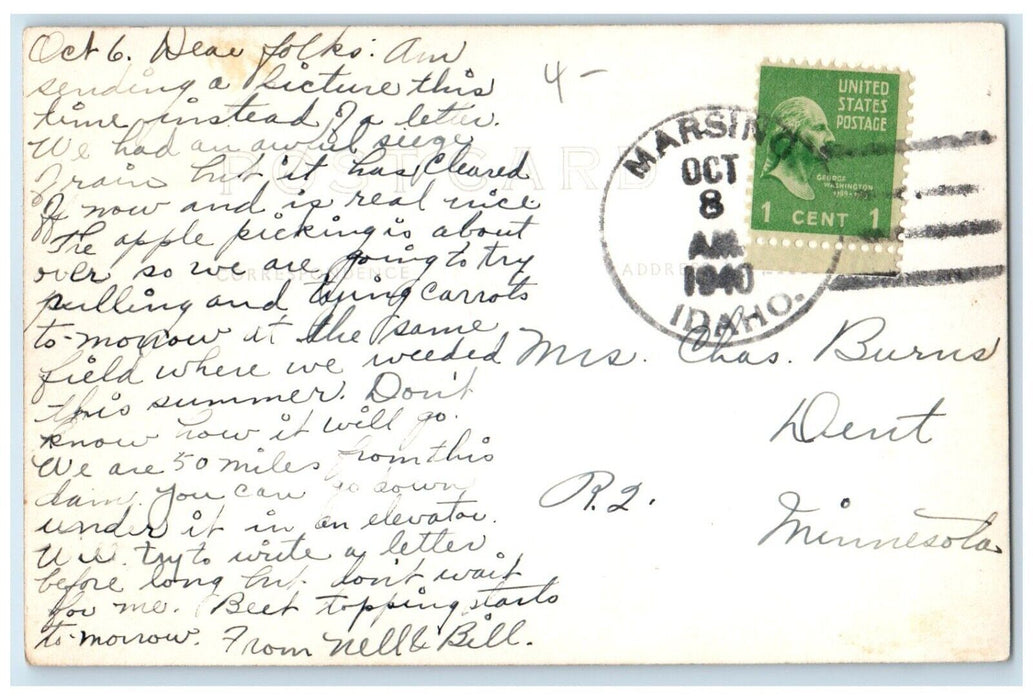 Oct 6. Dear folks: Am
sending a picture this
time instead of a letter.
We had an awful siege
of rain but it has cleared
off now and is real nice
The apple picking is about
over so we are going to try
pulling and tying carrots
to-morrow at the same
field where we weeded
this summer. Don't
know how it will go.
We are 50 miles from this
dam. You can go down
under it in an elevator.
Will try to write a letter
before long but don't wait
for me. Beet topping starts
to-morrow. From Nell & Bill.
4-
POST CARD
CORRESPONDENCE
ADDRESS
MARSING
OCT
8
AM
1940
IDAHO.
UNITED
STATES
POSTAGE
GEORGE
WASHINGTON
1 CENT 1
Mrs. Chas. Burns
Dent
R.2.
Minnesota